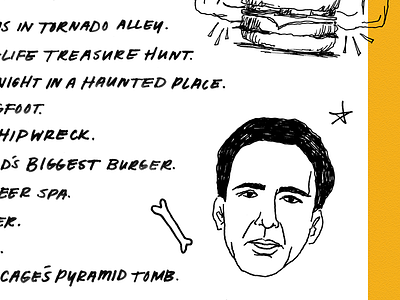 IN TORNADO ALLEY.
-LIFE TREASURE HUNT.
NIGHT IN A HAUNTED PLACE.
GFOOT.
HIPWRECK.
D'S BIGGEST BURGER.
EER SPA.
ER.
CAGE'S PYRAMID TOMB.